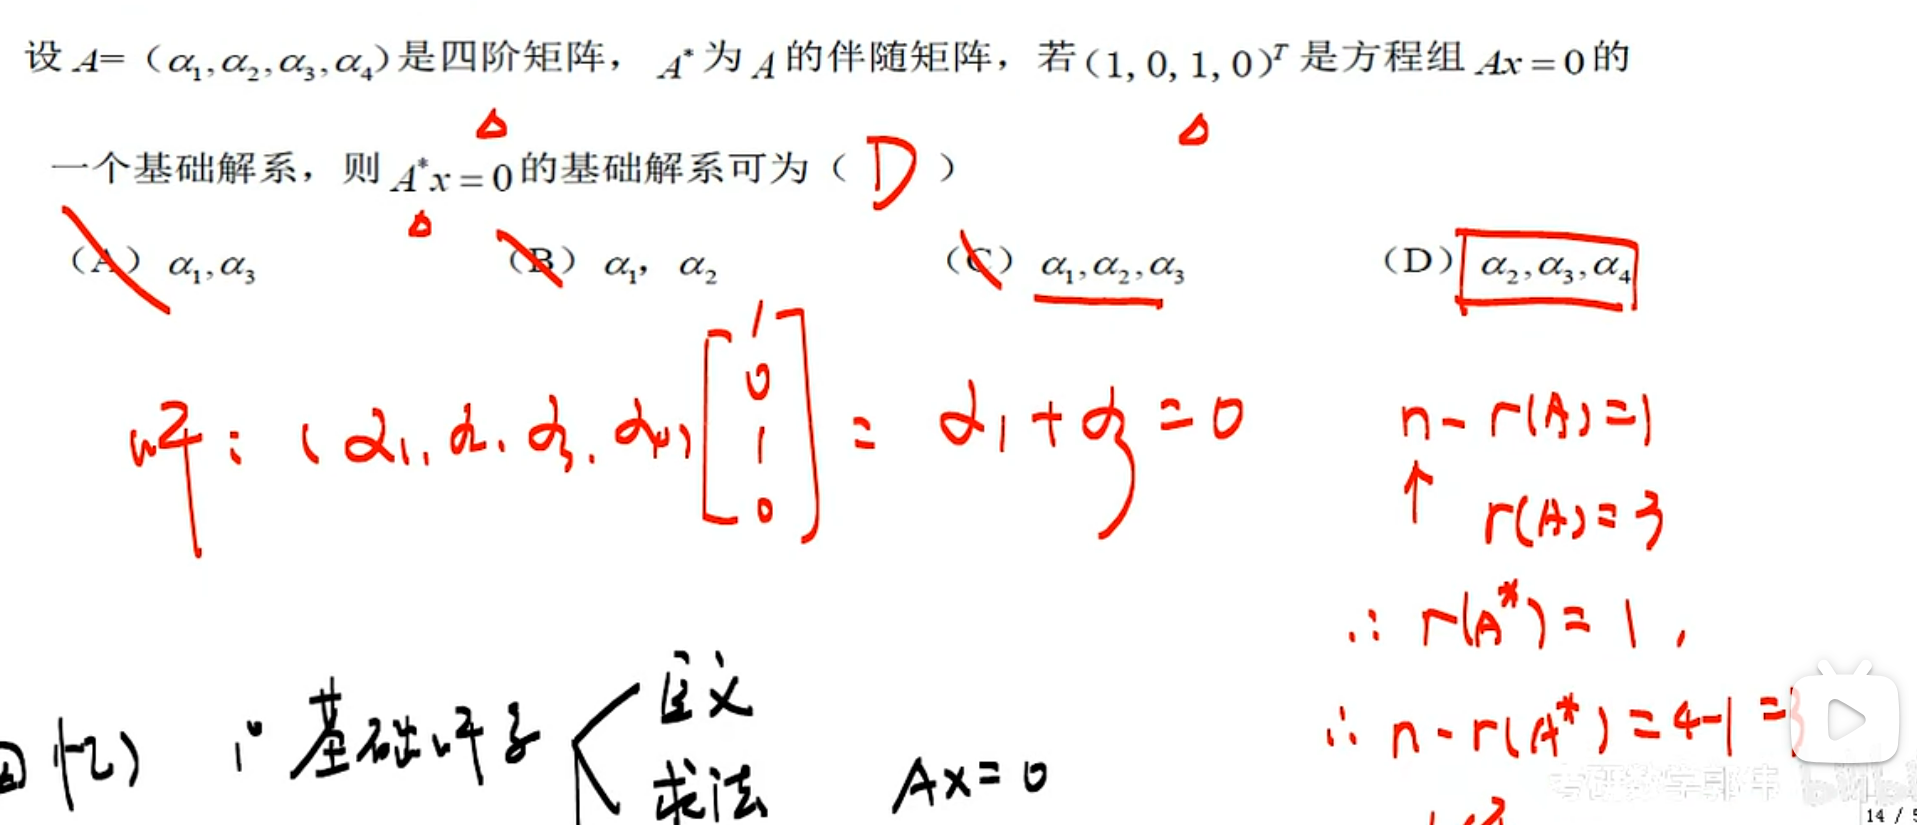 设 A=（α₁,α₂,α₃,α₄)是四阶矩阵， A* 为 A 的伴随矩阵，若(1, 0, 1, 0)ᵀ 是方程组 Ax = 0 的
一个基础解系，则 A*x = 0 的基础解系可为（ D ）
（A） α₁,α₃ （B） α₁， α₂ （C） α₁,α₂,α₃ （D） α₂,α₃,α₄
解: (α₁, α₂, α₃, α₄) [1 0 1 0] = α₁ + α₃ = 0
n - r(A) = 1
↑ r(A) = 3
∴ r(A*) = 1,
∴ n - r(A*) = 4-1 = 3
回忆) 1° 基础解系
定义
求法
Ax = 0
考研数学郭伟
bilibili
14 / 5